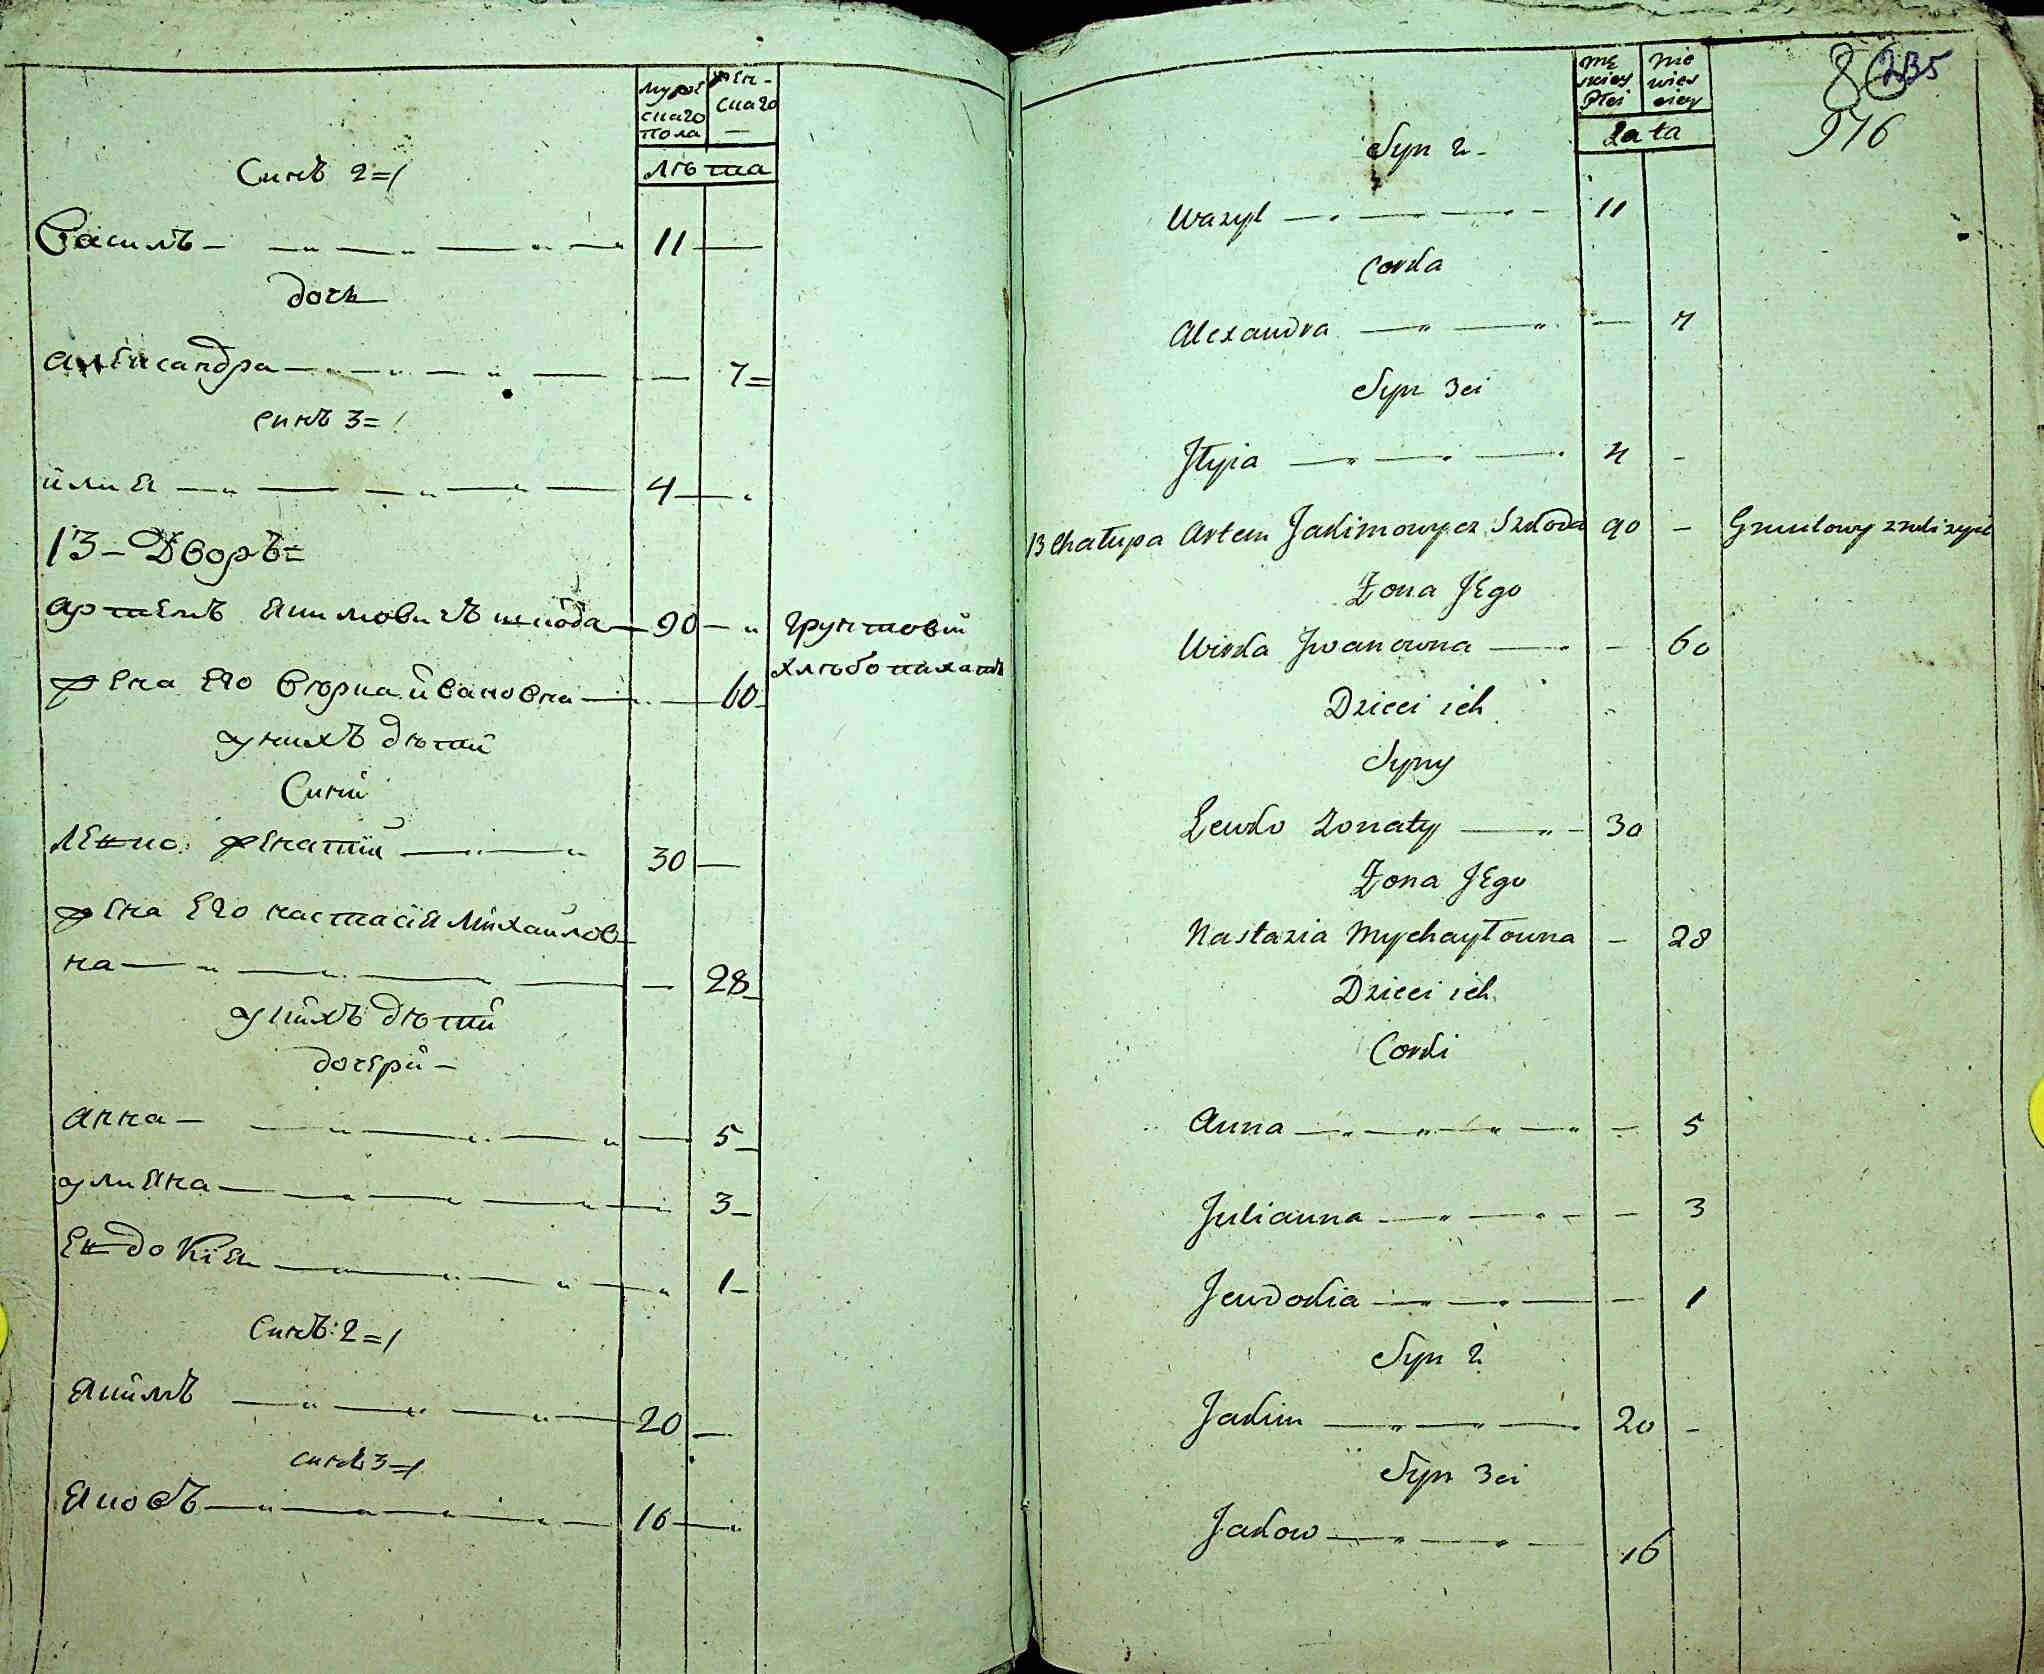 мужескаго пола
женскаго
лѣта
Синъ 2=
Василъ 11
дочь
алеѯандра 7
синъ 3=
илия 4
13 – Дворъ
артемъ якимовичъ шкода 90 грунтовий
хлѣбопихатъ
жена Его вѣрка ивановна 60
у нихъ дѣтий
Сини
Левко женатий 30
жена Его настасия Михайлов
на 28
у нихъ дѣтий
дочери
анна 5
улияна 3
Евдокия 1
Синъ: 2=
якимъ 20
синъ 3=
яковъ 16
męskiey płci
Lata
235
976
Syn 2
Wazyl 11
Corka
Alexandra 7
Syn 3ci
Jłyia 4
13 Chałupa Artem Jakimowycz Szkoda 90 Gruntowy
Żona JEgo
Wirka Jwanowna 60
Dzieci ich
Syny
Lewko żonaty 30
Żona JEgo
Nastazia Mychayłowna 28
Dzieci ich
Corki
Anna 5
Julianna 3
Jewdokia 1
Syn 2
Jakim 20
Syn 3ci
Jakow 16